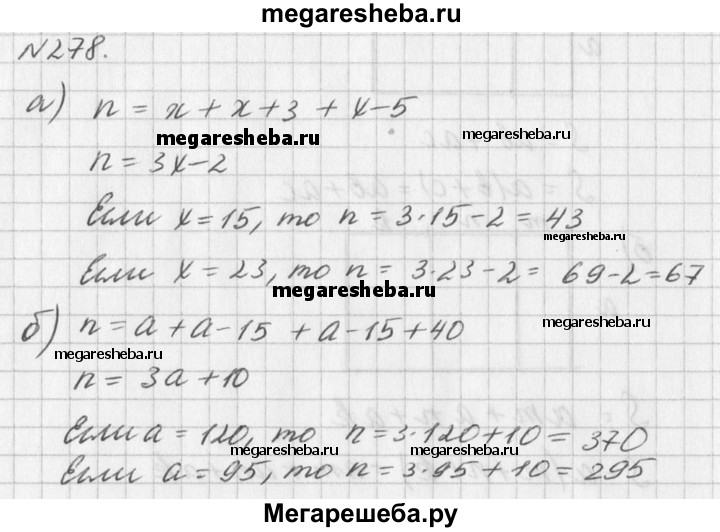 megaresheba.ru
№278.
а) n = x + x + 3 + x - 5
megaresheba.ru megaresheba.ru
n = 3x - 2
Если x = 15, то n = 3·15 - 2 = 43
megaresheba.ru
Если x = 23, то n = 3·23 - 2 = 69 - 2 = 67
megaresheba.ru
б) n = a + a - 15 + a - 15 + 40
megaresheba.ru megaresheba.ru
n = 3a + 10
Если a = 120, то n = 3·120 + 10 = 370
megaresheba.ru megaresheba.ru
Если a = 95, то n = 3·95 + 10 = 295
Мегарешеба.ру